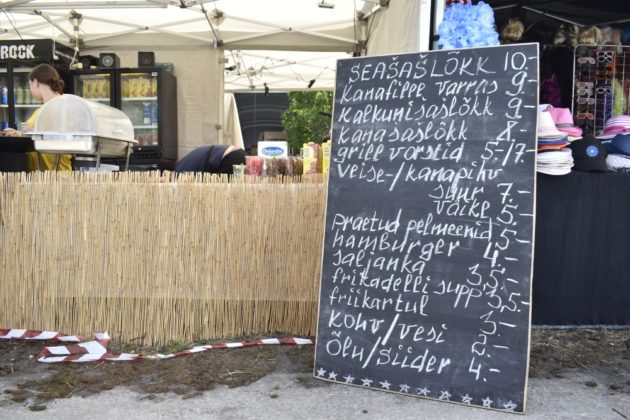 ROCK
SEAŠAŠLÕKK 10.-
Kanafilee varras 9.-
Kalkuni šašlõkk 9.-
Kana šašlõkk 8.-
grill vorstid 5.-/7.-
veise-/kanapihv
suur 7.-
väike 5.-
praetud pelmeenid 5.-
hamburger 4.-
seljanka 3,5.-
frikadelli supp 3,5.-
friikartul 3.-
Kohv/vesi
Õlu/Siider 4.-